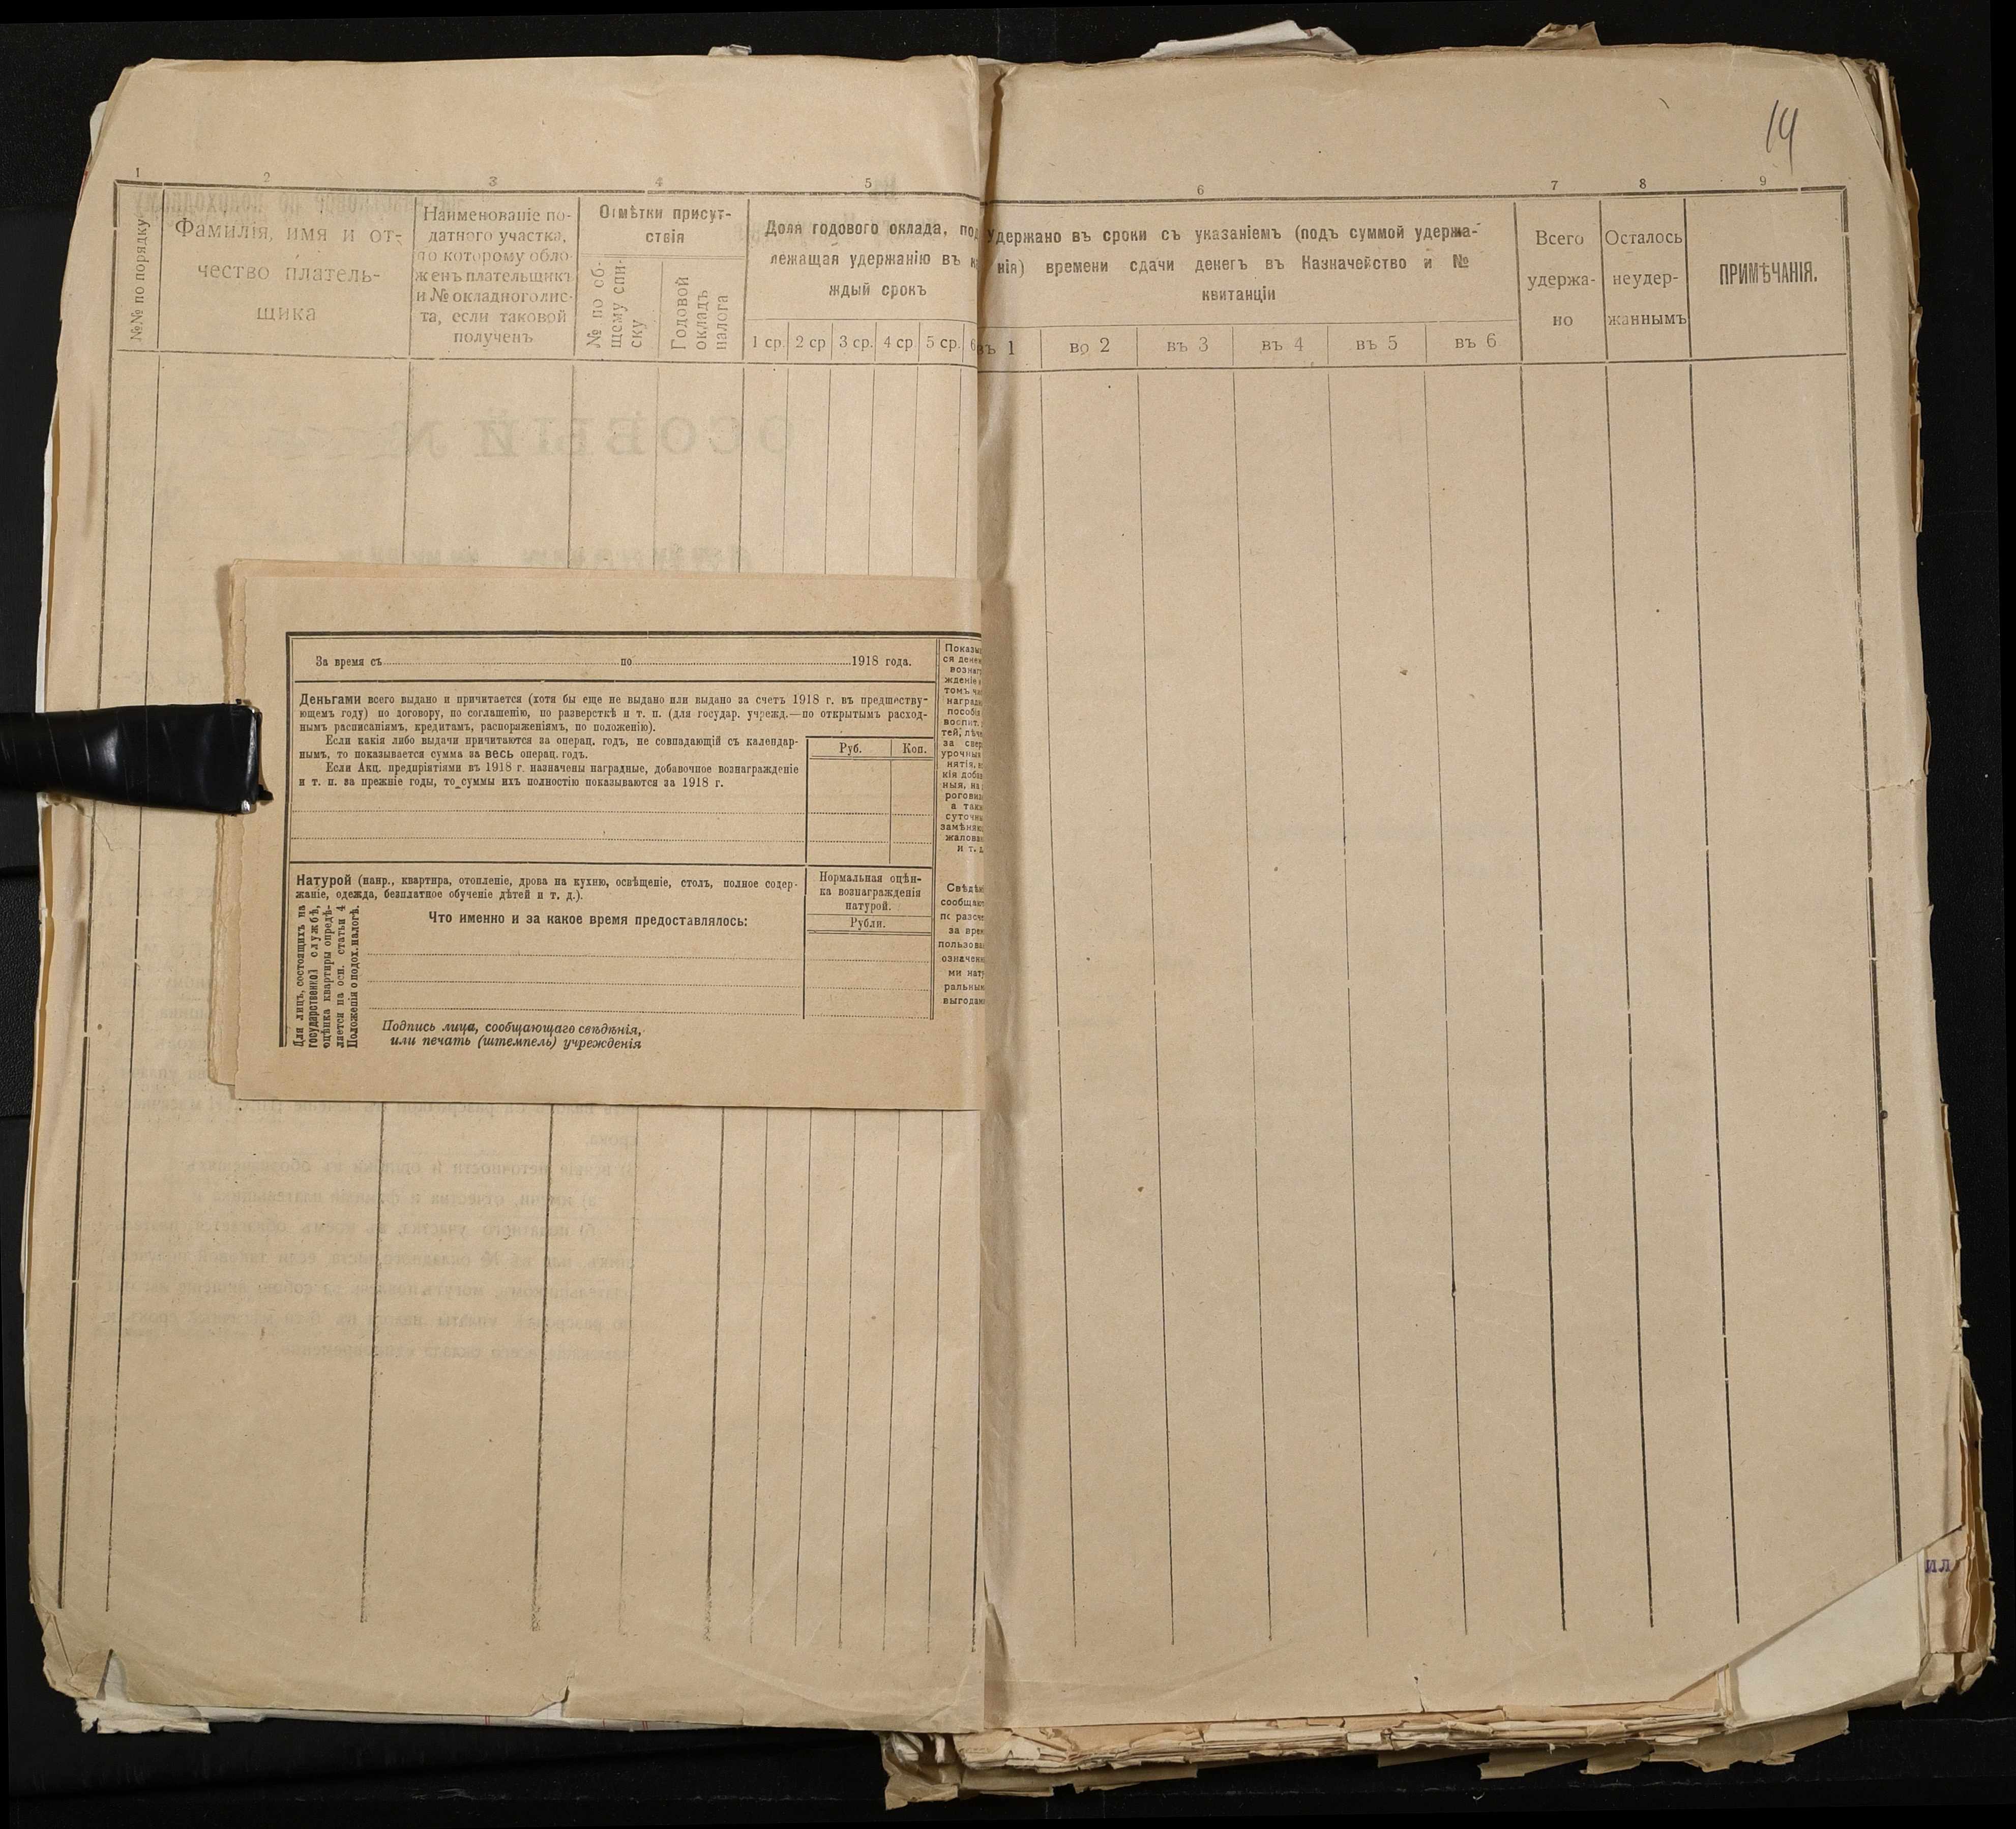 14
1 2 3 4 5
№№ по порядку
Фамилія, имя и от-
чество платель-
щика
Наименованіе по-
датного участка,
по которому обло-
женъ плательщикъ
и № окладного лис-
та, если таковой
полученъ
Отмѣтки присут-
ствія
№ по об-
щему спи-
ску
Годовой
окладъ
налога
Доля годового оклада, под
лежащая удержанію въ к
ждый срокъ
1 ср. 2 ср 3 ср. 4 ср 5 ср. 6
6 7 8 9
Удержано въ сроки съ указаніемъ (подъ суммой удержа-
нія) времени сдачи денегъ въ Казначейство и №
квитанціи
въ 1 во 2 въ 3 въ 4 въ 5 въ 6
Всего
удержа-
но
Осталось
неудер-
жаннымъ
ПРИМѢЧАНІЯ.
За время съ по 1918 года.
Деньгами всего выдано и причитается (хотя бы еще не выдано или выдано за счетъ 1918 г. въ предшеству-
ющемъ году) по договору, по соглашенію, по разверсткѣ и т. п. (для государ. учрежд.—по открытымъ расход-
нымъ расписаніямъ, кредитамъ, распоряженіямъ, по положенію).
Если какія либо выдачи причитаются за операц. годъ, не совпадающій съ календар-
нымъ, то показывается сумма за весь операц. годъ.
Если Акц. предпріятіями въ 1918 г. назначены наградные, добавочное вознагражденіе
и т. п. за прежніе годы, то суммы ихъ полностію показываются за 1918 г.
Руб. Коп.
Натурой (напр., квартира, отопленіе, дрова на кухню, освѣщеніе, столъ, полное содер-
жаніе, одежда, безплатное обученіе дѣтей и т. д.).
Что именно и за какое время предоставлялось:
Нормальная оцѣн-
ка вознагражденія
натурой.
Рубли.
Для лицъ, состоящихъ на
государственной службѣ,
оцѣнка квартиры опредѣ-
ляется на осн. статьи 4
Положенія о подох. налогѣ.
Подпись лица, сообщающаго свѣдѣнія,
или печать (штемпель) учрежденія
Показы
ся ден
вознаг
жденіе
томъ чи
наград
пособі
воспит.
тей, лѣч
за свер
урочны
нятія,
кія доба
ныя, на
рогови
а так
суточн
замѣня
жалова
и т. д.
Свѣдѣ
сообща
по разсч
за врем
пользова
означен
ми нату
ральны
выгода
ил